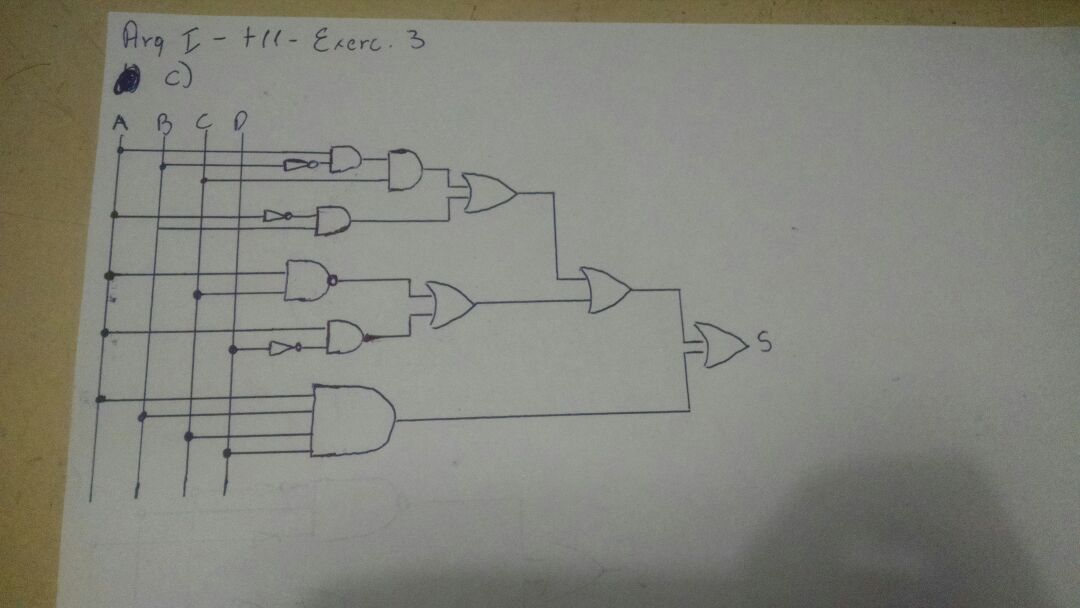 Arq I - t11 - Exerc. 3
c)
A B C D
S